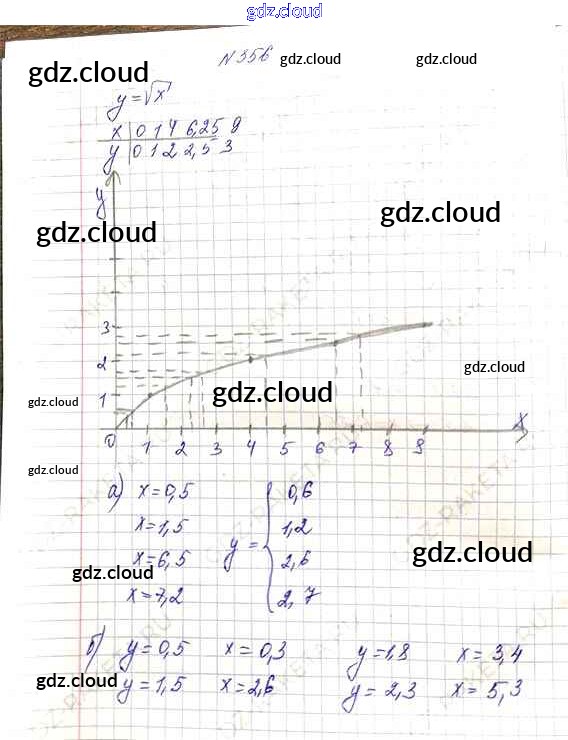 gdz.cloud
N356
gdz.cloud
gdz.cloud
y = √x
x | 0 1 4 6,25 9
y | 0 1 2 2,5 3
y
gdz.cloud
gdz.cloud
3
2
1
gdz.cloud
gdz.cloud
gdz.cloud
0 1 2 3 4 5 6 7 8 9 x
gdz.cloud
а) x = 0,5
x = 1,5
x = 6,5
x = 7,2
y = { 0,6
1,2
2,6
2,7
gdz.cloud
gdz.cloud
б) y = 0,5 x = 0,3 y = 1,8 x = 3,4
y = 1,5 x = 2,6 y = 2,3 x = 5,3
gdz.cloud
gdz.cloud